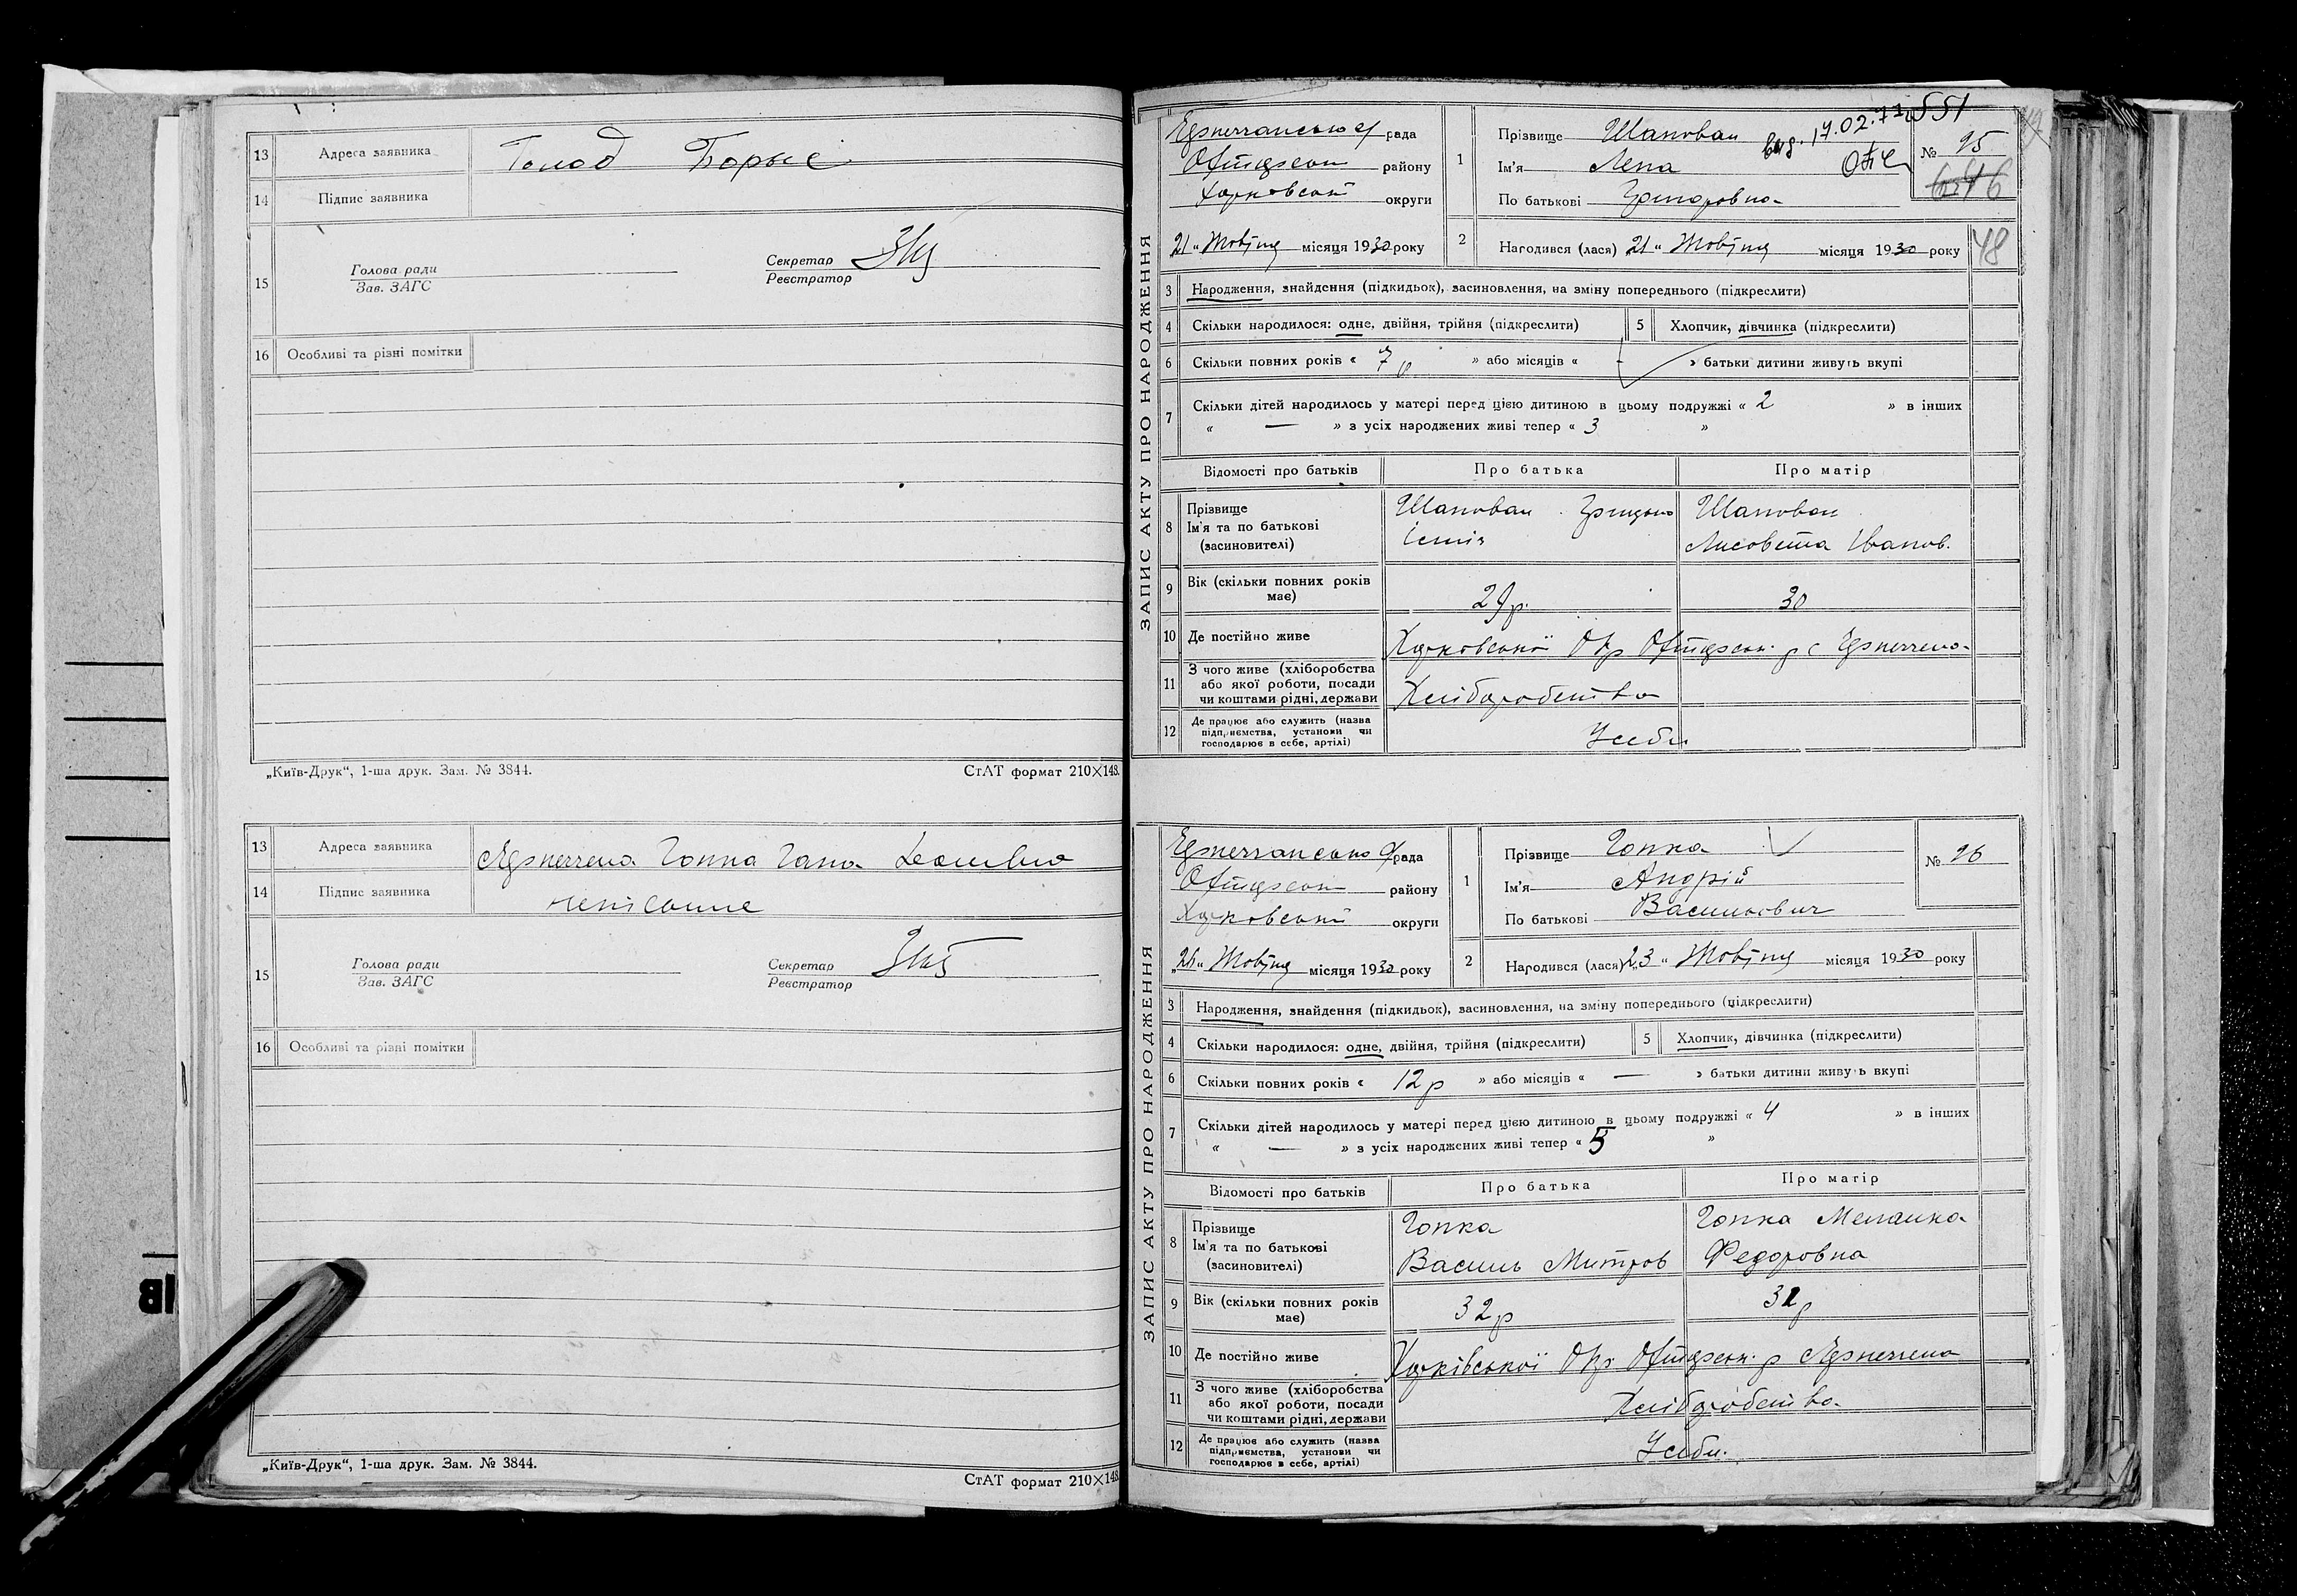 13 Адреса заявника Голод Борис
14 Підпис заявника
15 Голова ради
Зав. ЗАГС
Секретар
Реєстратор
16 Особливі та різні помітки
„Київ-Друк“, 1-ша друк. Зам. № 3844.
СтАТ формат 210×148.
13 Адреса заявника Гопка
14 Підпис заявника
15 Голова ради
Зав. ЗАГС
Секретар
Реєстратор
16 Особливі та різні помітки
„Київ-Друк“, 1-ша друк. Зам. № 3844.
СтАТ формат 210×148.
ЗАПИС АКТУ ПРО НАРОДЖЕННЯ
рада
району
Харковськ округи
21 „ Жовтня місяця 1930 року
551
17.02.72
1 Прізвище Шаповал
Ім'я Лена
По батькові Григоровна
№ 95
48
2 Народився (лася) „21 „ Жовтня місяця 1930 року
3 Народження, знайдення (підкидьок), засиновлення, на зміну попереднього (підкреслити)
4 Скільки народилося: одне, двійня, трійня (підкреслити) 5 Хлопчик, дівчинка (підкреслити)
6 Скільки повних років « 7 р » або місяців « » батьки дитини живуть вкупі
7 Скільки дітей народилось у матері перед цією дитиною в цьому подружжі « 2 » в інших
« — » з усіх народжених живі тепер « 3 »
Відомості про батьків Про батька Про матір
8 Прізвище
Ім'я та по батькові
(засиновителі)
Шаповал
Шаповал
Лисовета Іванов.
9 Вік (скільки повних років має) 29 р. 30
10 Де постійно живе Харковської Окр
11 З чого живе (хліборобства
або якої роботи, посади
чи коштами рідні, держави
Хліборобства
12 Де працює або служить (назва
підприємства, установи чи
господарює в себе, артілі)
Усебе
ЗАПИС АКТУ ПРО НАРОДЖЕННЯ
рада
району
Харковськ округи
„26 „ Жовтня місяця 1930 року
1 Прізвище Гопка
Ім'я Андрій
По батькові Васильович
№ 96
2 Народився (лася) „23 „ Жовтня місяця 1930 року
3 Народження, знайдення (підкидьок), засиновлення, на зміну попереднього (підкреслити)
4 Скільки народилося: одне, двійня, трійня (підкреслити) 5 Хлопчик, дівчинка (підкреслити)
6 Скільки повних років « 12 р » або місяців « — » батьки дитини живуть вкупі
7 Скільки дітей народилось у матері перед цією дитиною в цьому подружжі « 4 » в інших
« — » з усіх народжених живі тепер « 5 »
Відомості про батьків Про батька Про матір
8 Прізвище
Ім'я та по батькові
(засиновителі)
Гопка
Василь Митров
Гопка Меланка
Федоровна
9 Вік (скільки повних років має) 32 р
10 Де постійно живе Харківської Окр
11 З чого живе (хліборобства
або якої роботи, посади
чи коштами рідні, держави
Хліборобства
12 Де працює або служить (назва
підприємства, установи чи
господарює в себе, артілі)
Усебе.
ІВ